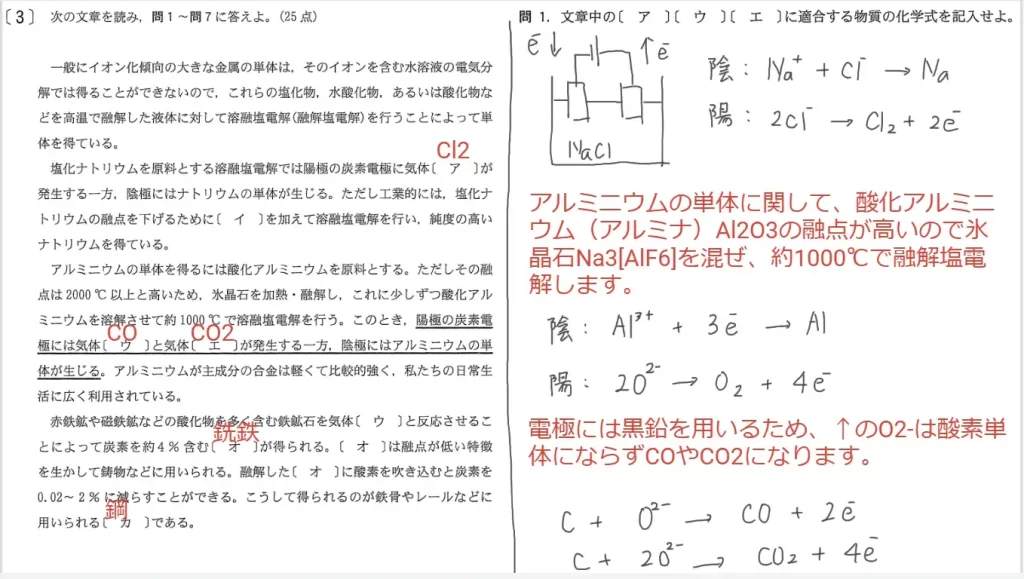 〔3〕 次の文章を読み，問1～問7に答えよ。(25点)
一般にイオン化傾向の大きな金属の単体は，そのイオンを含む水溶液の電気分
解では得ることができないので，これらの塩化物，水酸化物，あるいは酸化物な
どを高温で融解した液体に対して溶融塩電解(融解塩電解)を行うことによって単
体を得ている。
Cl2
塩化ナトリウムを原料とする溶融塩電解では陽極の炭素電極に気体〔 ア 〕が
発生する一方，陰極にはナトリウムの単体が生じる。ただし工業的には，塩化ナ
トリウムの融点を下げるために〔 イ 〕を加えて溶融塩電解を行い，純度の高い
ナトリウムを得ている。
アルミニウムの単体を得るには酸化アルミニウムを原料とする。ただしその融
点は2000 ℃以上と高いため，氷晶石を加熱・融解し，これに少しずつ酸化アル
ミニウムを溶解させて約1000 ℃で溶融塩電解を行う。このとき，陽極の炭素電
CO CO2
極には気体〔 ウ 〕と気体〔 エ 〕が発生する一方，陰極にはアルミニウムの単
体が生じる。アルミニウムが主成分の合金は軽くて比較的強く，私たちの日常生
活に広く利用されている。
赤鉄鉱や磁鉄鉱などの酸化物を多く含む鉄鉱石を気体〔 ウ 〕と反応させるこ
銑鉄
とによって炭素を約4％含む〔 オ 〕が得られる。〔 オ 〕は融点が低い特徴
を生かして鋳物などに用いられる。融解した〔 オ 〕に酸素を吹き込むと炭素を
0.02～2％に減らすことができる。こうして得られるのが鉄骨やレールなどに
鋼
用いられる〔 カ 〕である。
問 1．文章中の〔 ア 〕〔 ウ 〕〔 エ 〕に適合する物質の化学式を記入せよ。
e⁻↓ ↑e⁻
NaCl
陰： Na⁺ + Cl⁻ → Na
陽： 2Cl⁻ → Cl₂ + 2e⁻
アルミニウムの単体に関して、酸化アルミニ
ウム（アルミナ）Al2O3の融点が高いので氷
晶石Na3[AlF6]を混ぜ、約1000℃で融解塩電
解します。
陰： Al³⁺ + 3e⁻ → Al
陽： 2O²⁻ → O₂ + 4e⁻
電極には黒鉛を用いるため、↑のO2-は酸素単
体にならずCOやCO2になります。
C + O²⁻ → CO + 2e⁻
C + 2O²⁻ → CO₂ + 4e⁻